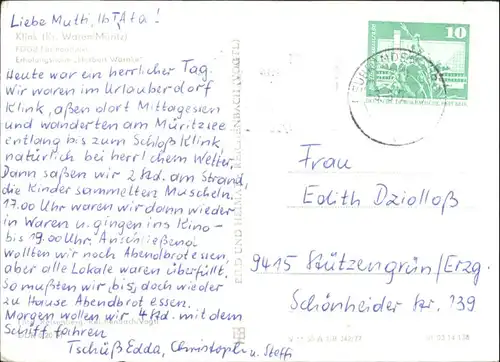 Liebe Mutti, lb TAta!
Klink (Kr. Waren/Müritz)
FDGB-
Erholungsheim "Herbert Warnke"
Heute war ein herrlicher Tag.
Wir waren im Urlauberdorf
Klink, aßen dort Mittagessen
und wanderten am Müritzsee
entlang bis zum Schloß Klink,
natürlich bei herrl chem Wetter.
Dann saßen wir 2 Std. am Strand,
die Kinder sammelten Muscheln.
17.00 Uhr waren wir dann wieder
in Waren u. gingen ins Kino-
bis 19.00 Uhr. Anschließend
wollten wir noch Abendbrot essen,
aber alle Lokale waren überfüllt.
So mußten wir bis doch wieder
zu Hause Abendbrot essen.
Morgen wollen wir 4 Std. mit dem
Schiff fahren
Tschüß Edda, Christoph u. Steffi
BILD UND HEIMAT REICHENBACH (VOGTL)
10
Frau
Edith Dziolloß
9415 Stützengrün/Erzg.
Schönheider Str. 139